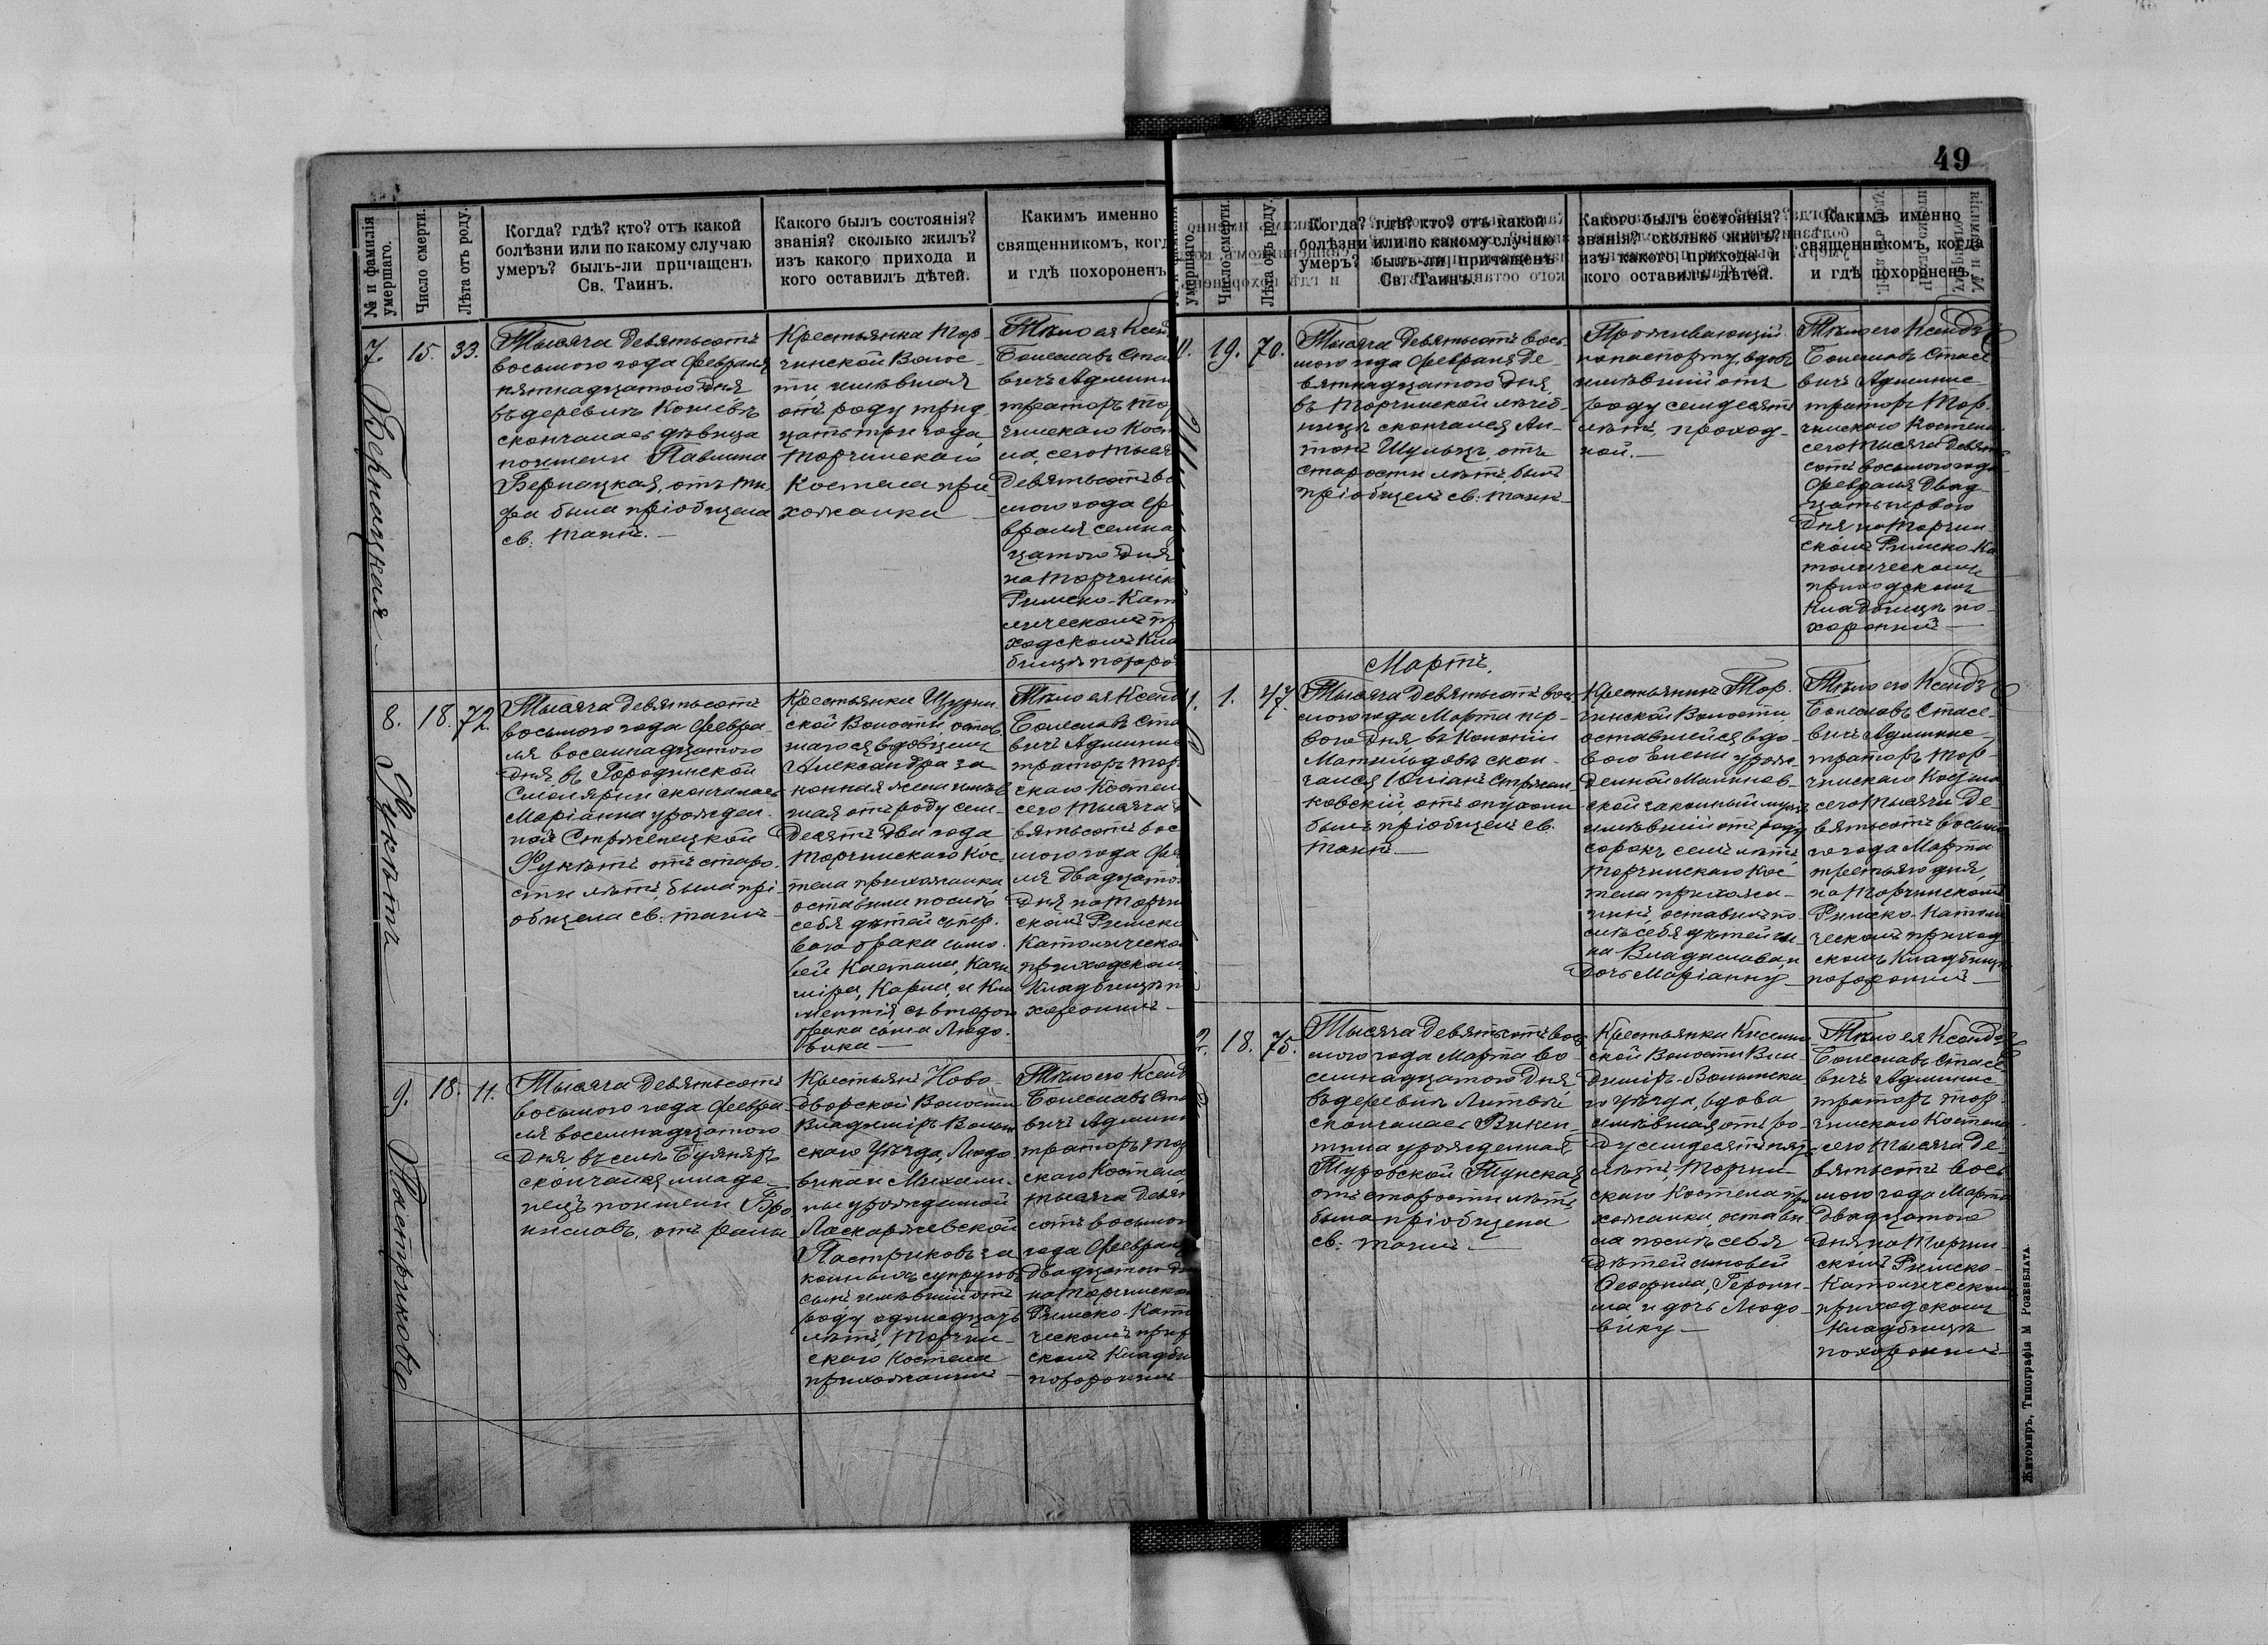 49
№ и фамилія умершаго.
Число смерти.
Лѣта отъ роду.
Когда? гдѣ? кто? отъ какой
болѣзни или по какому случаю
умеръ? былъ-ли причащенъ
Св. Таинъ.
Какого былъ состоянія?
званія? сколько жилъ?
изъ какого прихода и
кого оставилъ дѣтей.
Какимъ именно
священникомъ, когд
и гдѣ похороненъ
7.
Бернацкая
15.
33.
Тысяча девятьсотъ
восьмого года февраля
пятнадцатого дня
въ деревнѣ Кошевъ
скончалась дѣвица
по имени Павлина
Бернацкая, отъ ти-
фа была пріобщена
св. таинъ.—
Крестьянка Тор-
чинской Волос-
ти имѣвшая
отъ роду трид-
цать три года
Торчинскаго
Костела при-
хожанка
Тѣло ея Ксен
Болеславъ Ста
вичъ Админи
траторъ То
чинскаго Кост
ла, сего тыся
девятьсотъ во
мого года фе
враля семна
цатого дня
на Торчинск
Римско-Кат
лическомъ пр
ходскомъ Кла
бищѣ похоро
8.
18.
72.
Тысяча девятьсотъ
восьмого года февра-
ля восемнадцатого
дня въ Городинской
Смолярни скончалась
Маріанна урожден-
ной Стрженецкой
отъ старо-
сти лѣтъ, была прі-
общена св. таинъ
Крестьянки
ской Волости, остав
шагося вдовцемъ
Александра за-
конная жена имѣв
шая отъ роду сем-
десятъ два года
Торчинскаго Кос-
тела прихожанка,
оставила послѣ
себя дѣтей съ пер-
вого брака сыно-
вей Каетана, Кази
міра, Карла, и Кли
ментія съ второго
брака сына Людо-
вика—
Тѣло ея Ксенд
Болеславъ Ста
вичъ Админис
траторъ Тор
скаго Костел
сего тысяча д
вятьсотъ вос
мого года фев
ля двадцато
дня на Торчи
скомъ Римско
Католическо
приходском
Кладбищѣ п
хоронилъ—
9.
Пастриковъ
18.
11.
Тысяча девятьсотъ
восьмого года февра-
ля восемнадцатого
дня въ селѣ Буянахъ
скончался младе-
нецъ по имени Бро
ниславъ, отъ раны
Крестьянъ Ново-
дворской Волости
Владиміръ Волын
скаго Уѣзда, Людо
вика и Михали-
ны урожденной
Ласкаржевской
Пастриковъ за
конныхъ супруговъ
сынъ имѣвшій отъ
роду одинадцать
лѣтъ, Торчин-
скаго Костела
прихожанинъ
Тѣло его Ксенд
Болеславъ Ста
вичъ Админи
траторъ Тор
скаго Костела,
тысяча девят
сотъ восьмог
года Февраля
двадцатого дн
на Торчинско
Римско-Като
ческомъ прих
скомъ Кладби
похоронилъ
умершаго.
Число смерти.
Лѣта отъ роду.
Когда? гдѣ? кто? отъ какой
болѣзни или по какому случаю
умеръ? былъ-ли причащенъ
Св. Таинъ.
Какого былъ состоянія?
званія? сколько жилъ?
изъ какого прихода и
кого оставилъ дѣтей.
Какимъ именно
священникомъ, когда
и гдѣ похороненъ.
19.
70.
Тысяча девятьсотъ вось-
мого года февраля де-
вятнадцатого дня,
въ Торчинской лечеб-
ницѣ скончался Ан-
тонъ Шульцъ, отъ
старости лѣтъ, былъ
пріобщенъ св. таинъ
Проживающій
по паспорту, вдовъ
имѣвшій отъ
роду семдесятъ
лѣтъ, проход-
ной.—
Тѣло его Ксендзъ
Болеславъ Стасе-
вичъ Админис-
траторъ Тор-
чинскаго Костела
сего тысяча девять
сотъ восьмого года
Февраля двад-
цать первого
дня на Торчин-
скомъ Римско-Ка
толическомъ
приходскомъ
Кладбищѣ по-
хоронилъ—
Мартъ.
1.
47.
Тысяча девятьсотъ вось
мого года Марта пер-
вого дня, въ Колоніи
Матильдовъ скон-
чался Юліанъ Стржал-
ковскій, отъ опухоли
былъ пріобщенъ св.
таинъ—
Крестьянинъ Тор-
чинской Волости
оставшейся вдо-
вою Елены урож-
денной Малинов-
ской законный мужъ
имѣвшій отъ роду
сорокъ семь лѣтъ
Торчинскаго Кос-
тела прихожа-
нинъ, оставилъ по-
слѣ себя дѣтей сы-
на Владислава, и
дочь Маріанну—
Тѣло его Ксендзъ
Болеславъ Стасе-
вичъ Админис-
траторъ Тор-
чинскаго Костела
сего тысяча де-
вятьсотъ восьмо
го года Марта
третьяго дня,
на Торчинскомъ
Римско-Католи
ческомъ приход
скомъ Кладбищѣ
похоронилъ—
18.
75.
Тысяча девятьсотъ вось
мого года Марта во-
семнадцатого дня,
въ деревнѣ Литвѣ
скончалась Викен-
тина урожденная
Туровской Тунская
отъ старости лѣтъ,
была пріобщена
св. таинъ.—
Крестьянки Киселин
ской Волости Вла-
диміръ-Волынска
го Уѣзда, вдова
имѣвшая отъ ро-
ду семдесятъ пять
лѣтъ, Торчин-
скаго Костела при
хожанка, остави
ла послѣ себя
дѣтей сыновей
Теофила, Герони-
ма и дочь Людо-
вику—
Тѣло ея Ксендзъ
Болеславъ Стасе-
вичъ Админис-
траторъ Тор-
чинскаго Костела
сего тысяча де-
вятьсотъ вось
мого года Марта
двадцатого
дня на Торчин-
скомъ Римско-
Католическомъ
приходскомъ
Кладбищѣ
похоронилъ—
Житомиръ, Типографія М Розенблата.